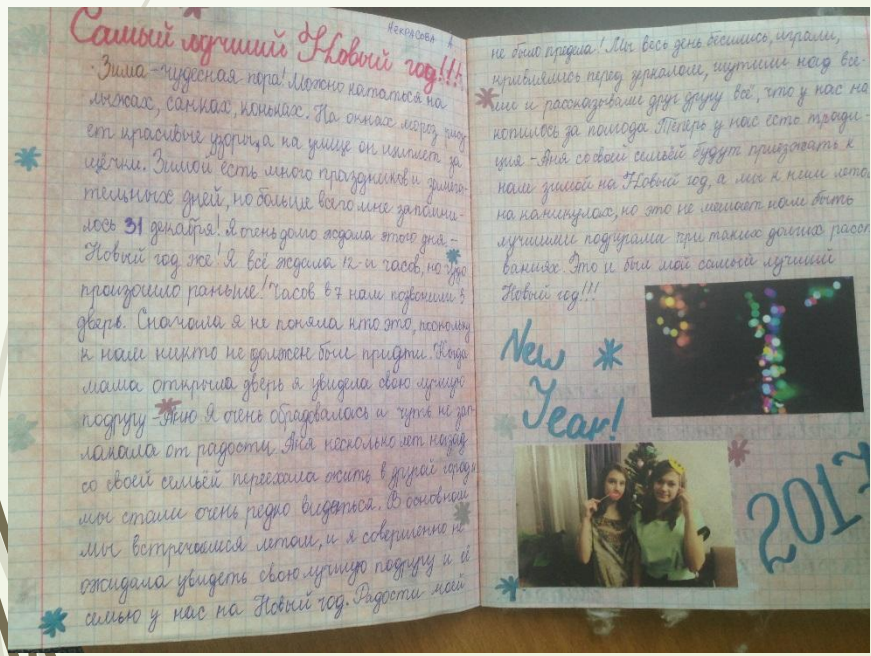 Некрасова А
Самый лучший Новый год!!!
Зима - чудесная пора! Можно кататься на
лыжах, санках, коньках. На окнах мороз рису-
ет красивые узоры, а на улице он щиплет за
щёчки. Зимой есть много праздников и замеча-
тельных дней, но больше всего мне запомни-
лось 31 декабря! Я очень долго ждала этого дня -
Новый год же! Я всё ждала 12-и часов, но чудо
произошло раньше! Часов в 7 нам позвонили в
дверь. Сначала я не поняла кто это, поскольку
к нам никто не должен был придти. Когда
мама открыла дверь я увидела свою лучшую
подругу - Аню. Я очень обрадовалась а чуть не зап-
лакала от радости. Аня несколько лет назад
со своей семьёй переехала жить в другой город и
мы стали очень редко видеться. В основном
мы встречаемся летом, и я совершенно не
ожидала увидеть свою лучшую подругу и её
семью у нас на Новый год. Радости моей
не было предела! Мы весь день бесились, играли,
кривлялись перед зеркалом, шутили над все-
ми и рассказывали друг другу всё, что у нас на
копилось за полгода. Теперь у нас есть тради-
ция - Аня со своей семьёй будут приезжать к
нам зимой на Новый год, а мы к ним летом
на каникулах, но это не мешает нам быть
лучшими подругами при таких долгих расст
ваниях. Это и был мой самый лучший
Новый год!!!
New
Year!
2017